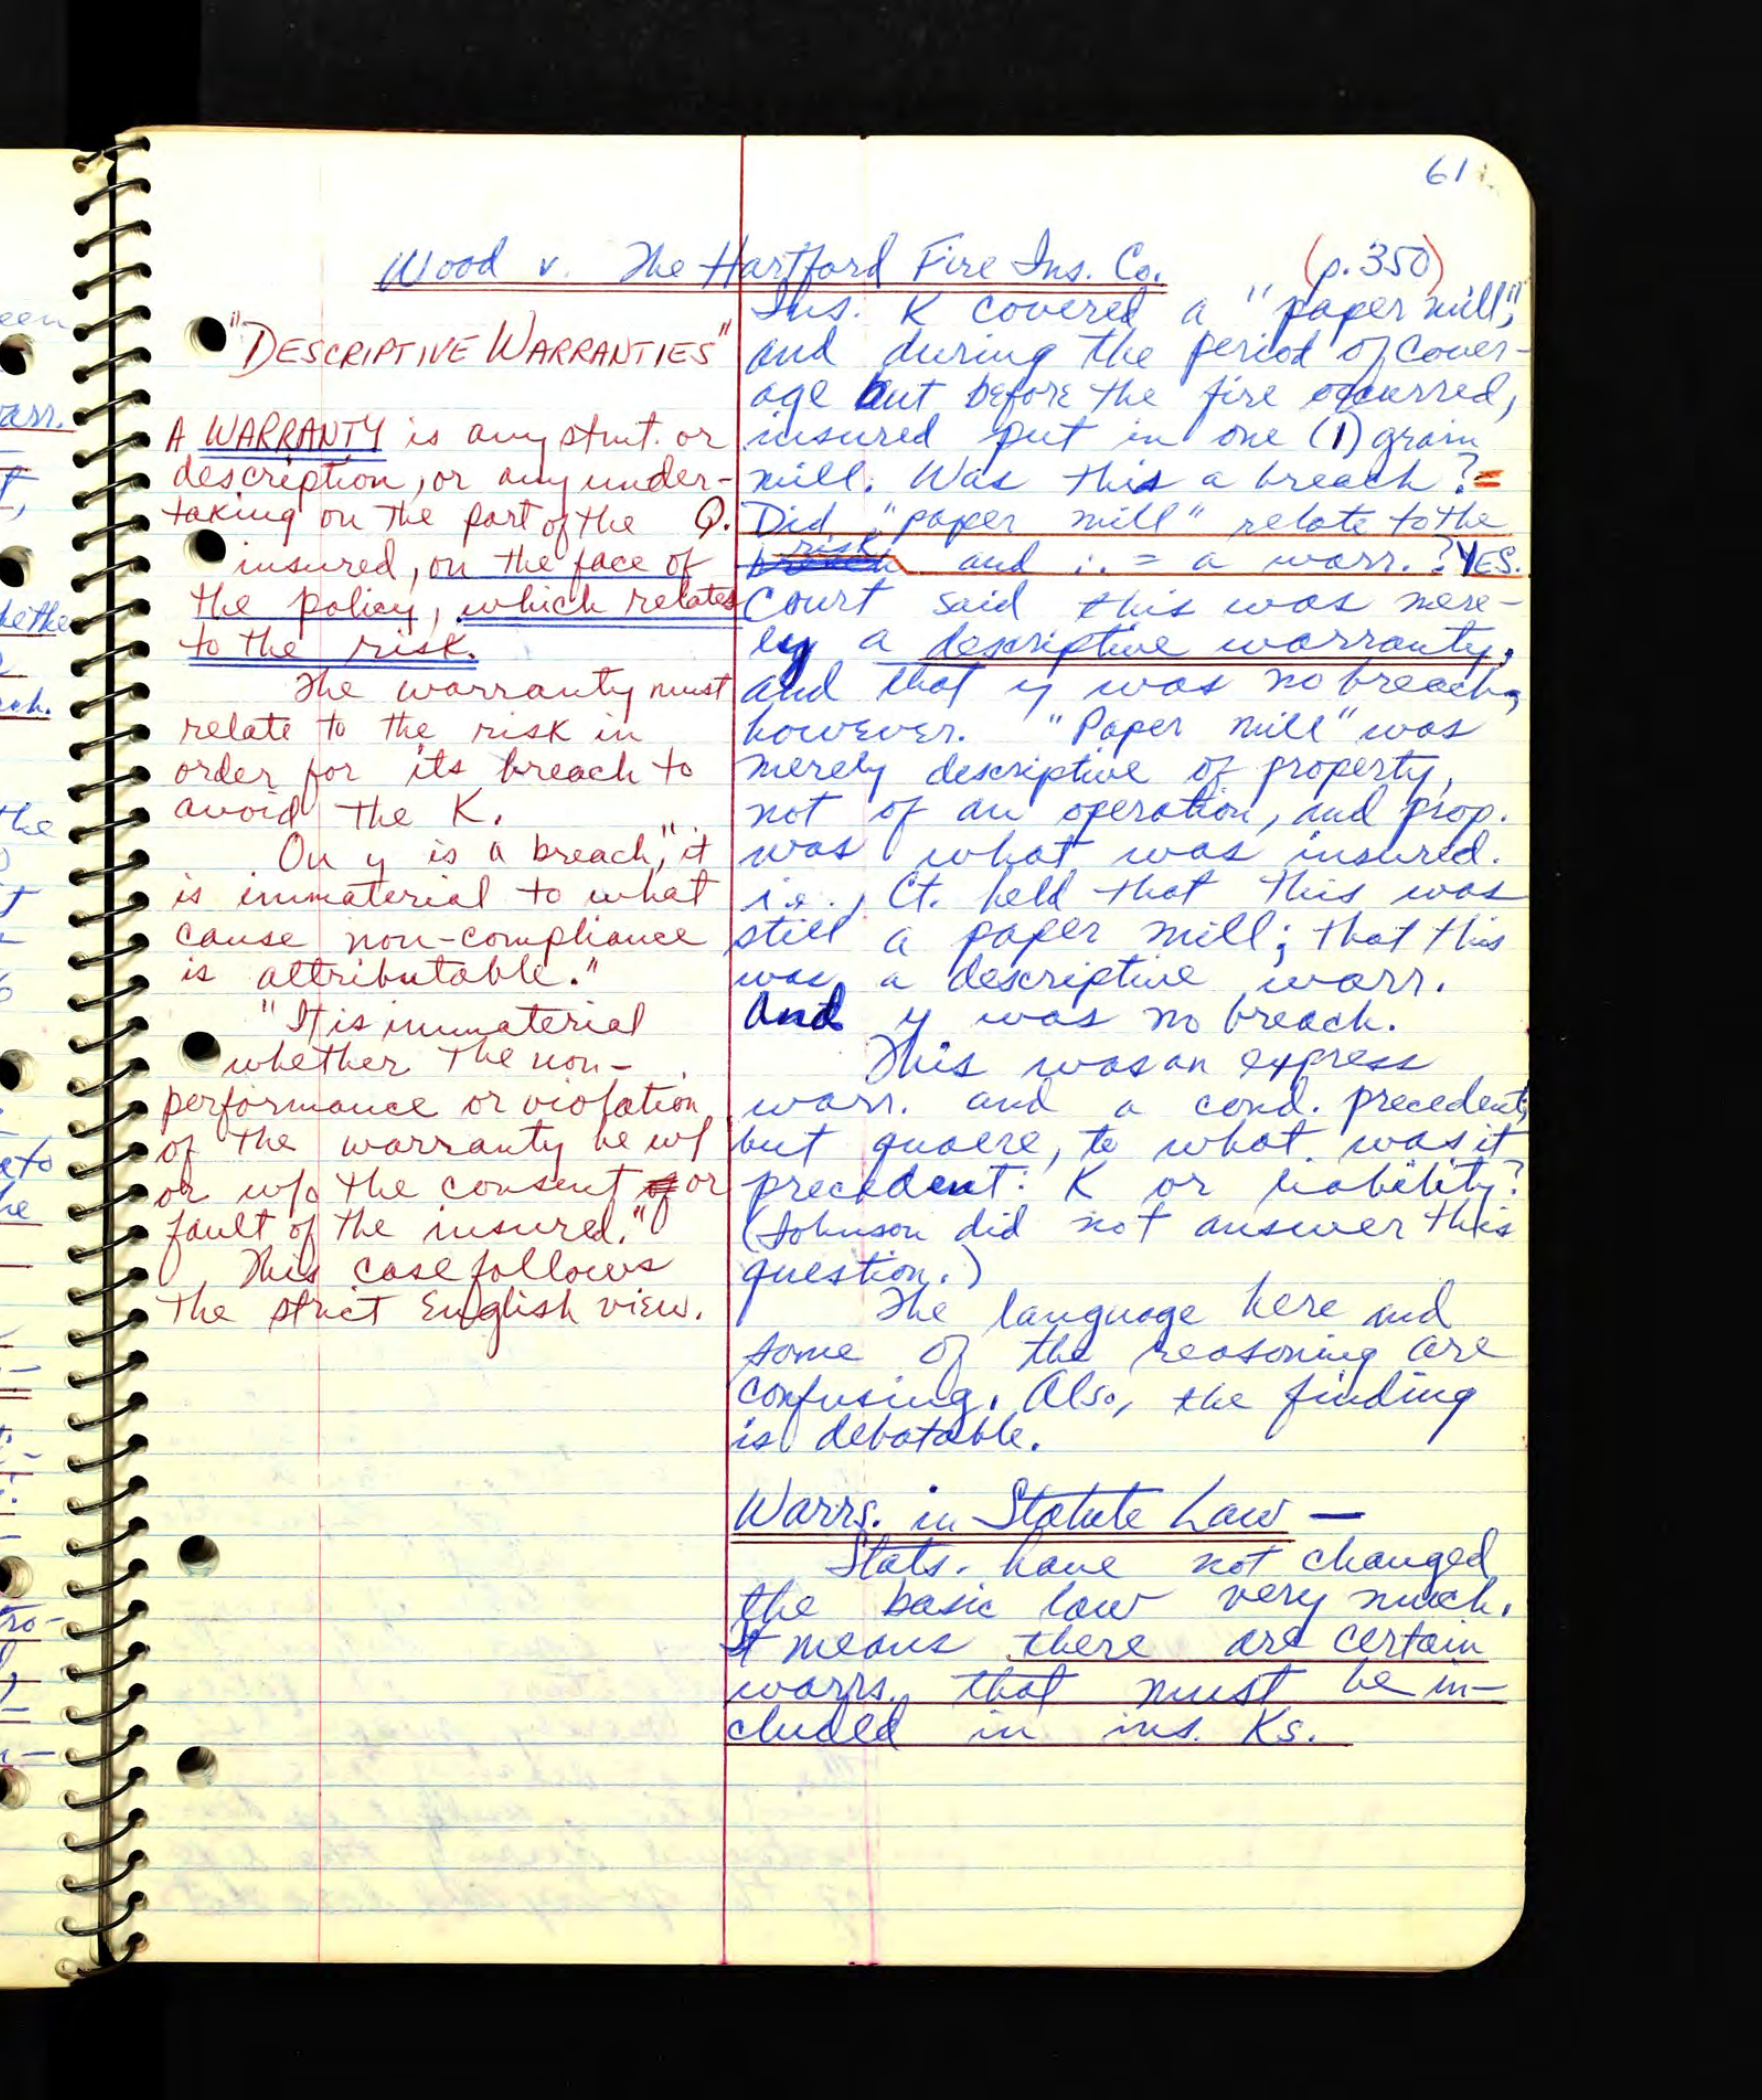 61
Wood v. The Hartford Fire Ins. Co. (p. 350)
"DESCRIPTIVE WARRANTIES"
A WARRANTY is any stmt. or
description, or any under-
taking on the part of the
insured, on the face of
the policy, which relates
to the risk.
The warranty must
relate to the risk in
order for its breach to
avoid the K.
On y is a breach, "it
is immaterial to what
cause non-compliance
is attributable."
"It is immaterial
whether the non-
performance or violation
of the warranty be w/
or w/o the consent or
fault of the insured."
This case follows
the strict English view.
Ins. K covered a "paper mill",
and during the period of cover-
age but before the fire occurred,
insured put in one (1) grain
mill. Was this a breach? =
Q. Did "paper mill" relate to the
risk and ∴ = a warr.? YES.
Court said this was mere-
ly a descriptive warranty,
and that y was no breach,
however. "Paper mill" was
merely descriptive of property,
not of an operation, and prop.
was what was insured.
i.e., Ct. held that this was
still a paper mill; that this
was a descriptive warr.
and y was no breach.
This was an express
warr. and a cond. precedent,
but quaere, to what was it
precedent: K or liability?
(Johnson did not answer this
question.)
The language here and
some of the reasoning are
confusing. Also, the finding
is debatable.
Warrs. in Statute Law —
Stats. have not changed
the basic law very much.
It means there are certain
warrs. that must be in-
cluded in ins. Ks.
een
arr.
the